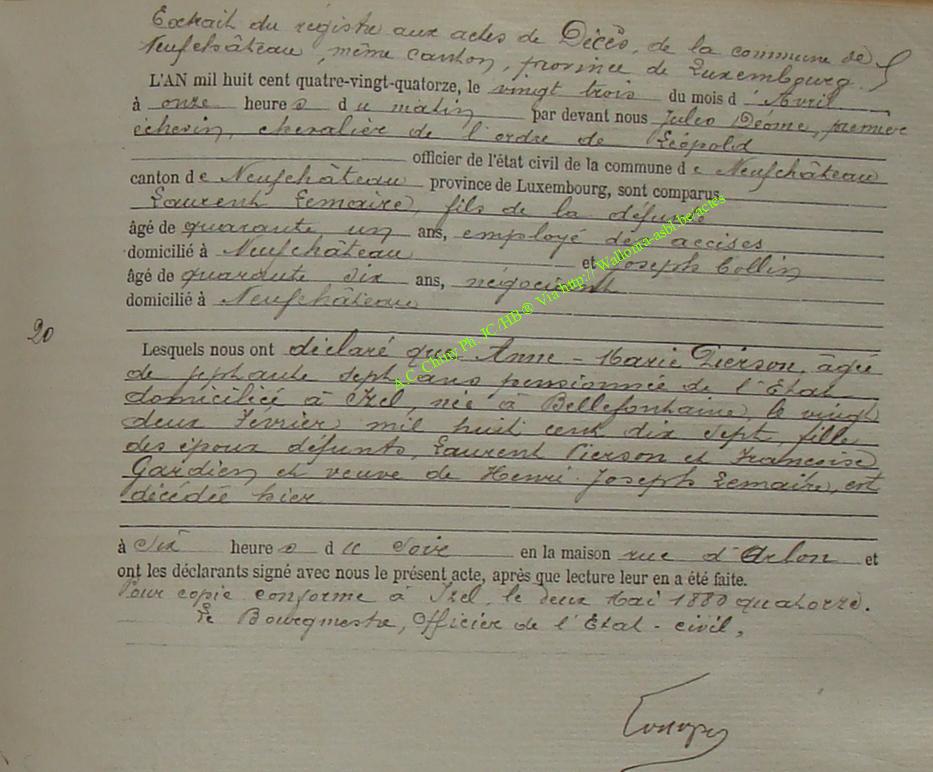 Extrait du régistre aux actes de Décès, de la commune de
Neufchâteau, même canton, province de Luxembourg.
L'AN mil huit cent quatre-vingt-quatorze, le vingt trois du mois d'Avril
à onze heures du matin par devant nous Jules Déome, premier
échevin, chevalier de l'ordre de Léopold
officier de l'état civil de la commune de Neufchâteau
canton de Neufchâteau province de Luxembourg, sont comparus
Laurent Lemaire, fils de la défunte
âgé de quarante un ans, employé des accises
domicilié à Neufchâteau et Joseph Collin
âgé de quarante six ans, négociant
domicilié à Neufchâteau
20
Lesquels nous ont déclaré que Anne-Marie Pierson, âgé
de septante sept ans pensionnée de l'Etat
domiciliée à Izel, née à Bellefontaine, le vingt
deux Février mil huit cent dix sept, fille
des époux défunts, Laurent Pierson et Françoise
Gardien et veuve de Henri-Joseph Lemaire, est
décédée hier
à six heures du soir en la maison rue d'Arlon et
ont les déclarants signé avec nous le présent acte, après que lecture leur en a été faite.
Pour copie conforme à Izel, le deux Mai 1880 quatorze.
Le Bourgmestre, Officier de l'Etat-civil,
A.C. Chiny Ph. JC/HB® Via http://Wallonia-asbl.be/actes